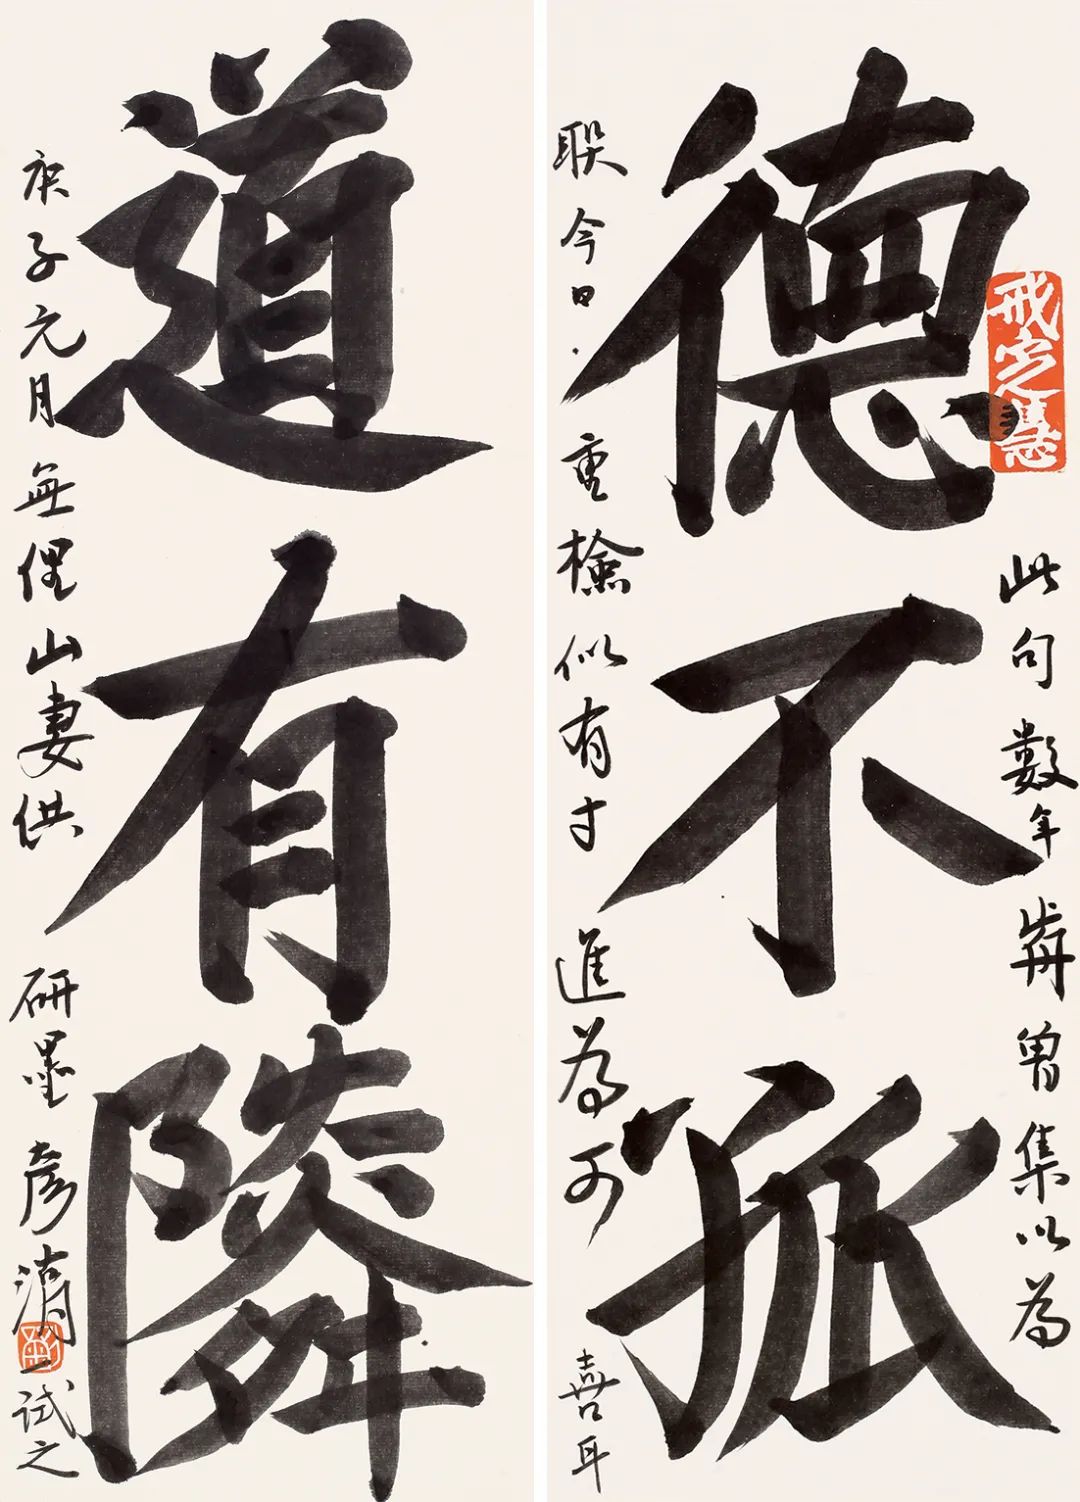 戒定慧
德不孤
此句數年前曾集以為
聯今日重檢似有寸進為可喜耳
道有隣
庚子元月無俚山妻供研墨彥清一試之